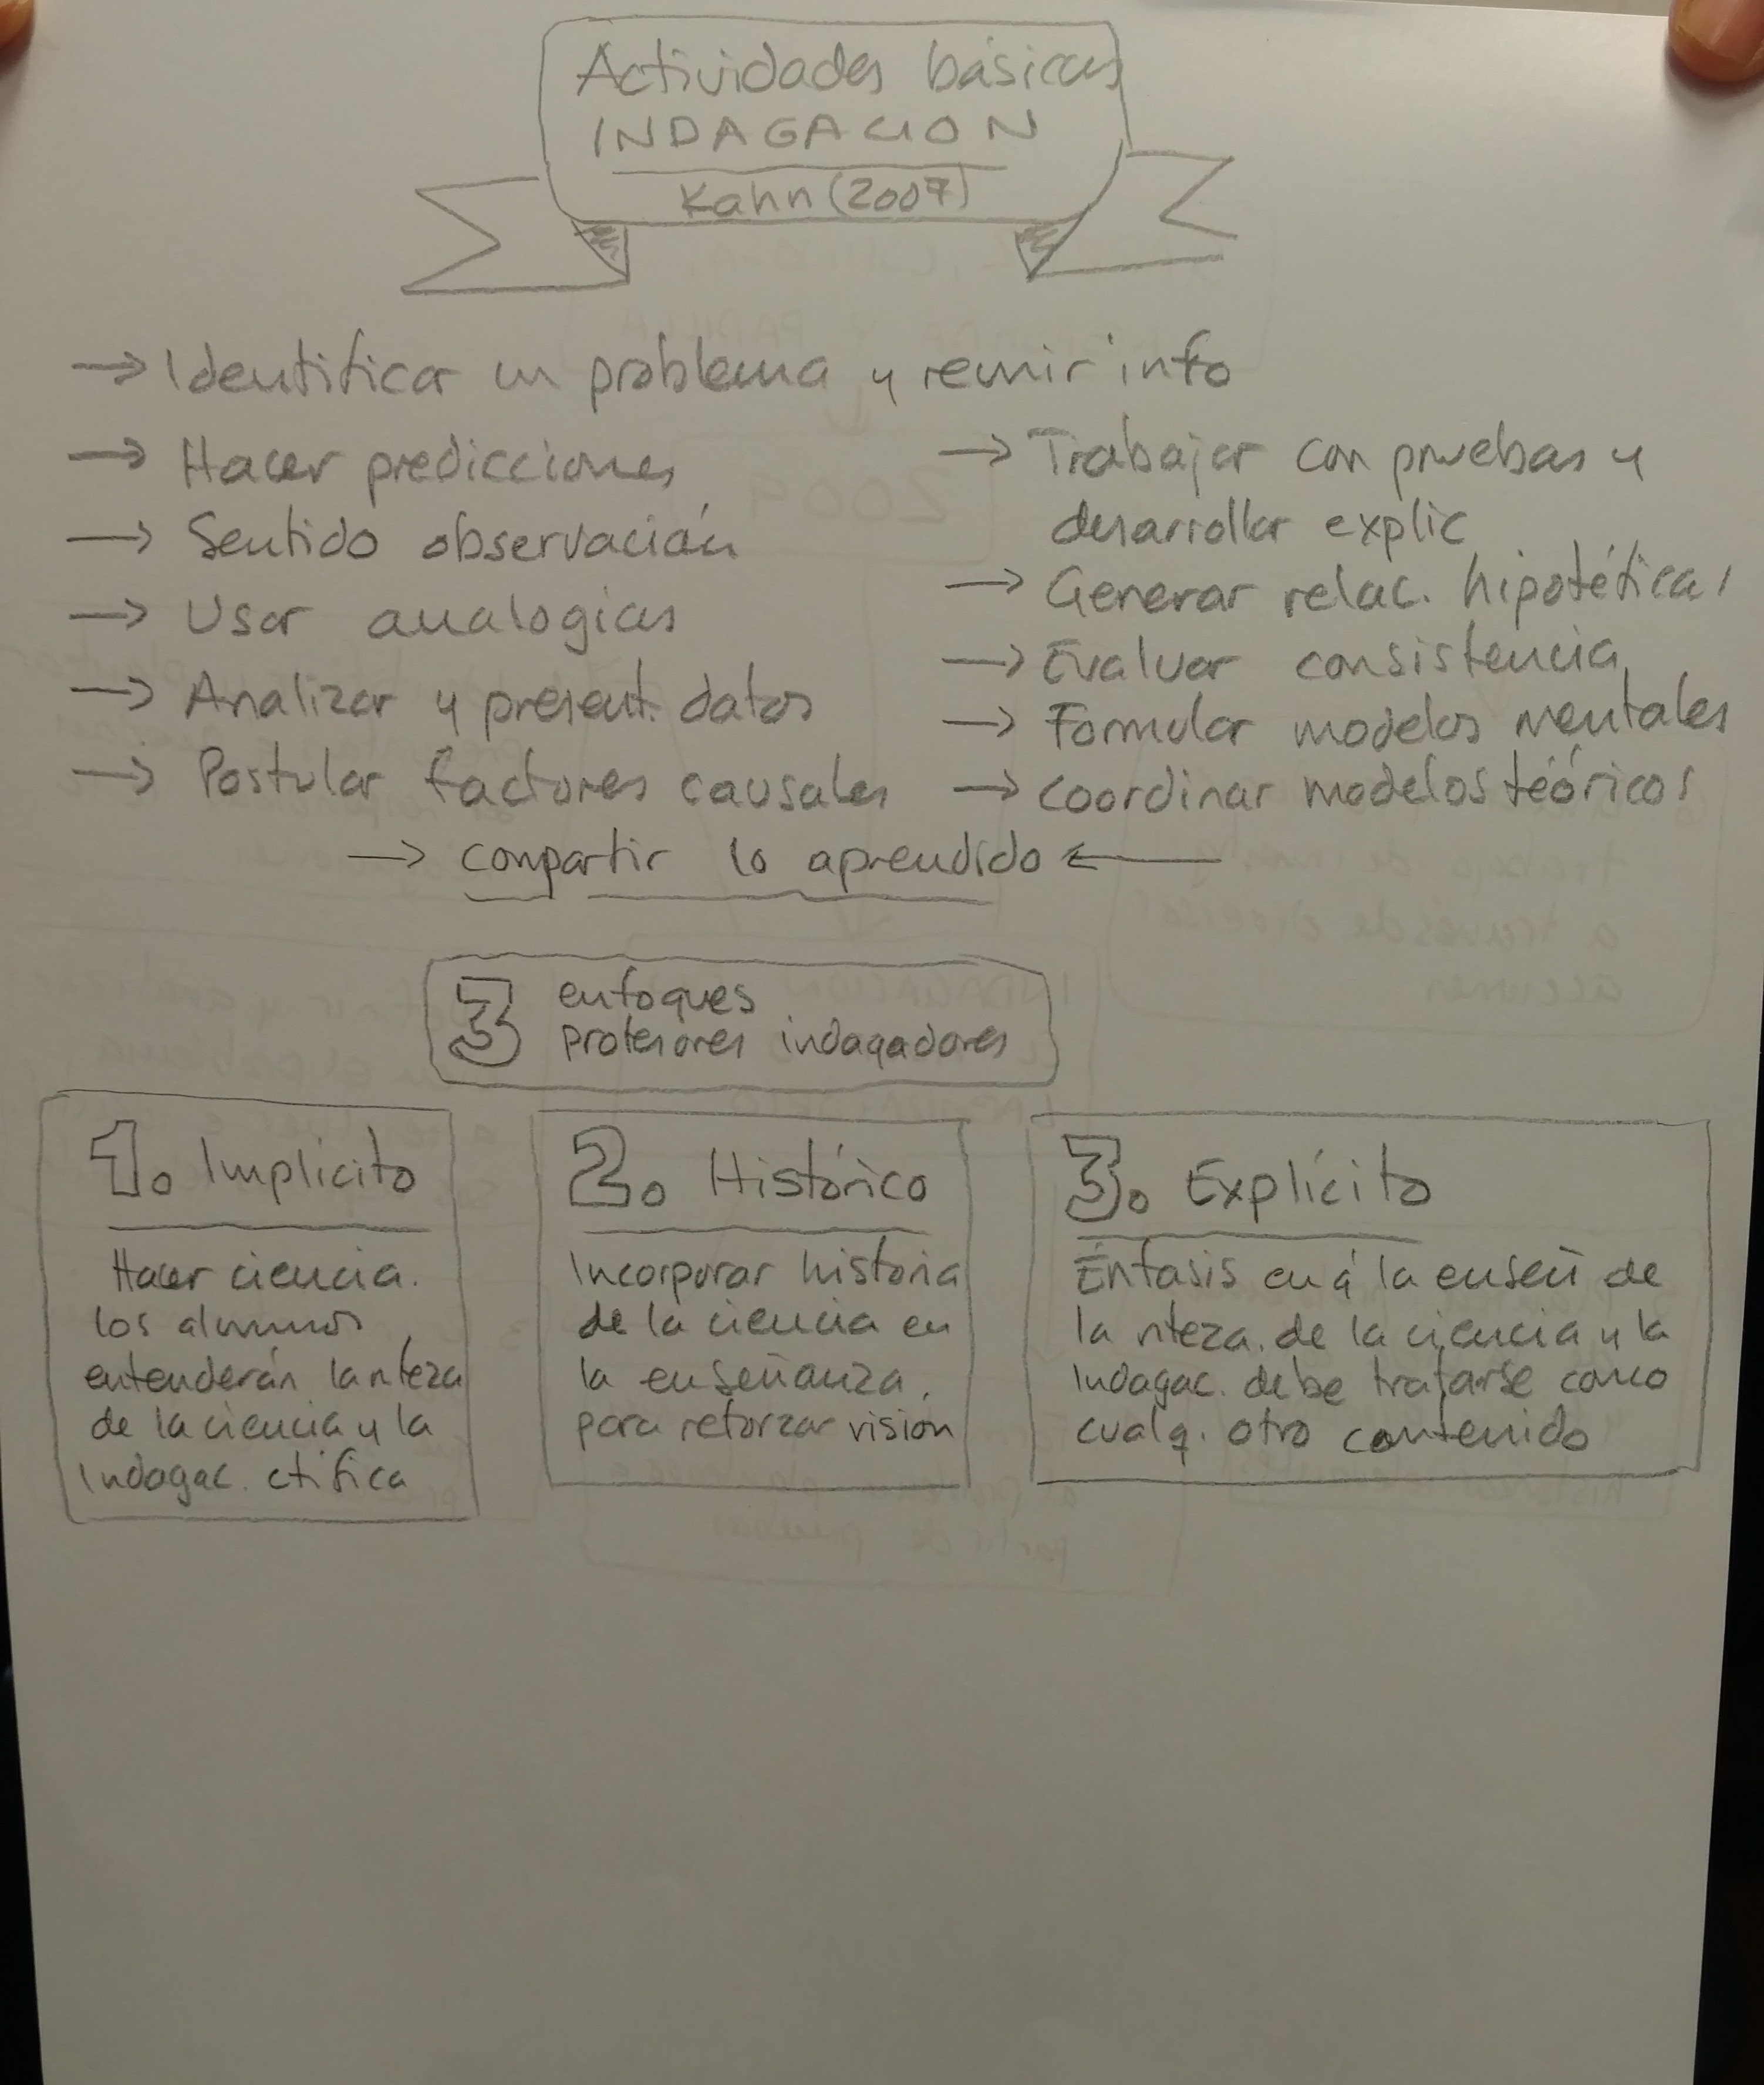 Actividades básicas
INDAGACION
Kahn (2007)
→ Identificar un problema y reunir info
→ Hacer predicciones
→ Sentido observación
→ Usar analogías
→ Analizar y present. datos
→ Postular factores causales
→ Trabajar con pruebas y
desarrollar explic
→ Generar relac. hipotéticas
→ Evaluar consistencia
→ Formular modelos mentales
→ Coordinar modelos teóricos
→ compartir lo aprendido ←
3 enfoques
profesores indagadores
1. Implícito
Hacer ciencia.
los alumnos
entenderán la nteza
de la ciencia y la
Indagac. ctífica
2. Histórico
Incorporar historia
de la ciencia en
la enseñanza.
para reforzar visión
3. Explícito
Énfasis en q' la enseñ de
la nteza. de la ciencia y la
Indagac. debe tratarse como
cualq. otro contenido